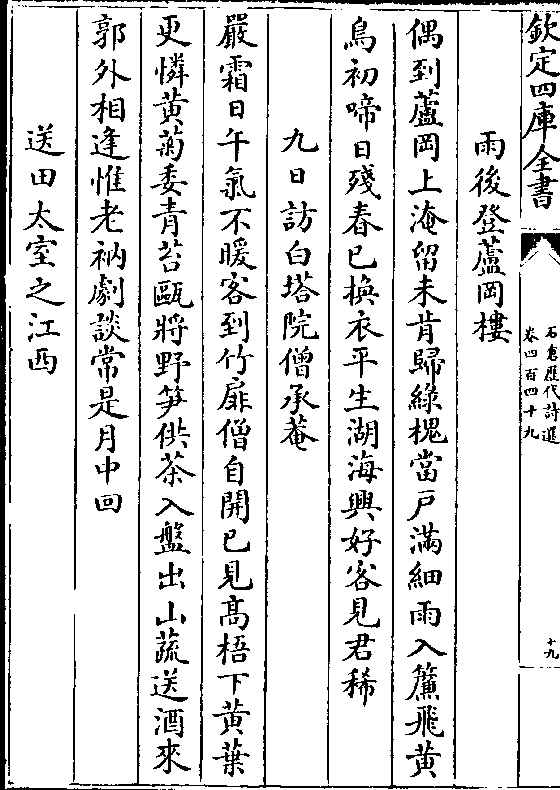 欽定四庫全書
石倉歷代詩選
卷四百四十九
十九
雨後登蘆岡樓
偶到蘆岡上淹留未肯歸綠槐當戶滿細雨入簾飛黃
鳥初啼日殘春已換衣平生湖海興好客見君稀
九日訪白塔院僧承菴
嚴霜日午氣不暖客到竹扉僧自開已見高梧下黃葉
更憐黃菊委青苔甌將野笋供茶入盤出山蔬送酒來
郭外相逢惟老衲劇談常是月中回
送田太室之江西